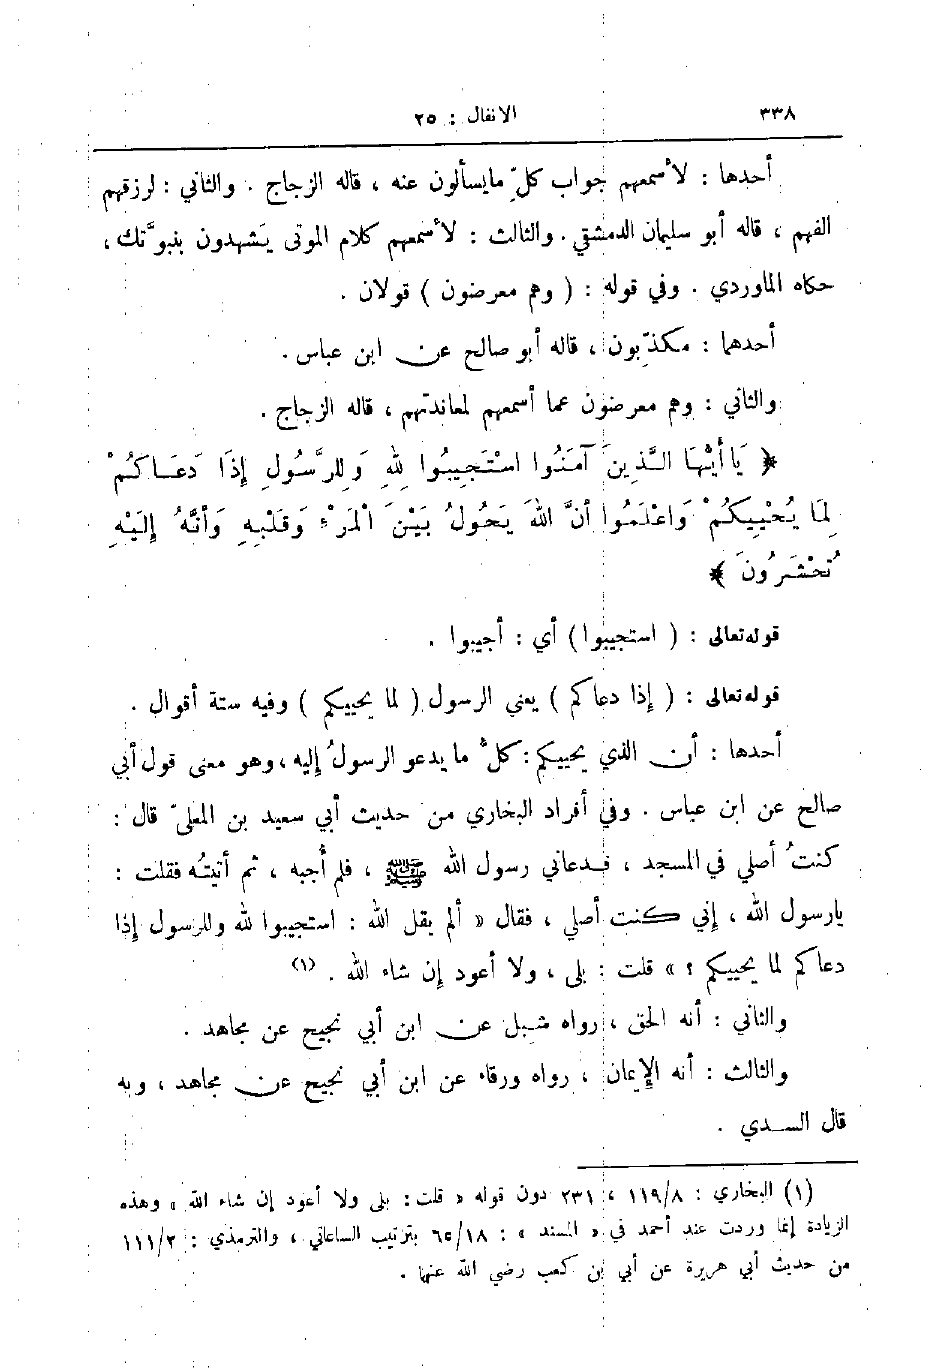 ٣٣٨ الانفال : ٢٥
أحدها : لأسمعهم جواب كلِّ مايسألون عنه ، قاله الزجاج . والثاني : لرزقهم
الفهم ، قاله أبو سليمان الدمشقي . والثالث : لأسمعهم كلام الموتى يَشهدون بنبوَّتك ،
حكاه الماوردي . وفي قوله : ( وهم معرضون ) قولان .
أحدهما : مكذِّبون ، قاله أبو صالح عن ابن عباس .
والثاني : وهم معرضون عما أسمعهم لمعاندتهم ، قاله الزجاج .
﴿ يَا أَيُّهَا الَّذِينَ آمَنُوا اسْتَجِيبُوا لِلهِ وَلِلرَّسُولِ إِذَا دَعَاكُمْ
لِمَا يُحْيِيكُمْ وَاعْلَمُوا أَنَّ اللهَ يَحُولُ بَيْنَ الْمَرْءِ وَقَلْبِهِ وَأَنَّهُ إِلَيْهِ
تُحْشَرُونَ ﴾
قوله تعالى : ( استجيبوا ) أي : أجيبوا .
قوله تعالى : ( إذا دعاكم ) يعني الرسول ( لما يحييكم ) وفيه ستة أقوال .
أحدها : أن الذي يحييكم : كلُّ ما يدعو الرسولُ إليه ، وهو معنى قول أبي
صالح عن ابن عباس . وفي أفراد البخاري من حديث أبي سعيد بن المعلىّ قال :
كنتُ أصلي في المسجد ، فدعاني رسول الله ﷺ ، فلم أُجبه ، ثم أتيتُه فقلت :
يارسول الله ، إني كنت أصلي ، فقال « ألم يقل الله : استجيبوا لله وللرسول إذا
دعاكم لما يحييكم ؟ » قلت : بلى ، ولا أعود إن شاء الله . (١)
والثاني : أنه الحق ، رواه شبل عن ابن أبي نجيح عن مجاهد .
والثالث : أنه الإيمان ، رواه ورقاء عن ابن أبي نجيح عن مجاهد ، وبه
قال السدي .
(١) البخاري : ١١٩/٨ ، ٢٣١ دون قوله « قلت : بلى ولا أعود إن شاء الله » وهذه
الزيادة إنما وردت عند أحمد في « المسند » : ٦٥/١٨ بترتيب الساعاتي ، والترمذي : ١١١/٢
من حديث أبي هريرة عن أبي بن كعب رضي الله عنهما .